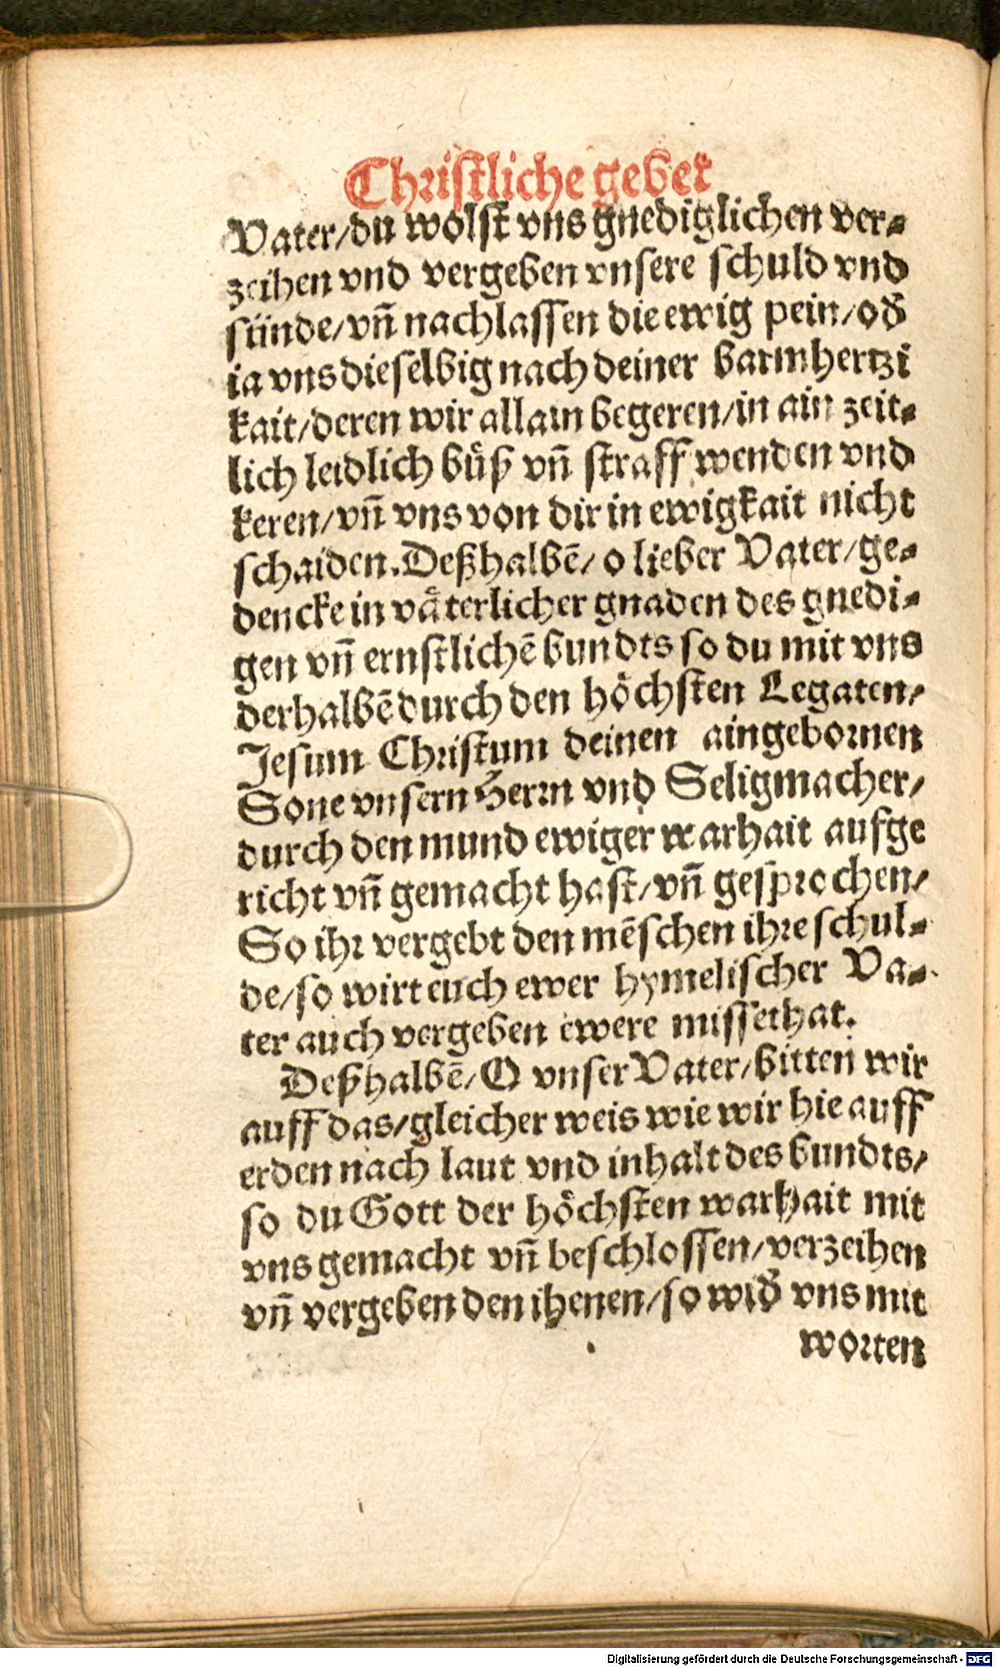 Christliche gebet
Vater/du wolst vns gnediglichen ver-
zeihen vnd vergeben vnsere schuld vnd
sünde/vñ nachlassen die ewig pein/od̃
ia vns dieselbig nach deiner barmhertzi
kait/deren wir allain begeren/in ain zeit-
lich leidlich bůß vñ straff wenden vnd
keren/vñ vns von dir in ewigkait nicht
schaiden. Deßhalbẽ/o lieber Vater/ge-
dencke in vaͤterlicher gnaden des gnedi-
gen vñ ernstlichẽ bundts so du mit vns
derhalbẽ durch den hoͤchsten Legaten/
Jesum Christum deinen aingebornen
Sone vnsern Herrn vnd Seligmacher/
durch den mund ewiger warhait aufge
richt vñ gemacht hast/vñ gesprochen/
So ihr vergebt den mẽschen ihre schul-
de/so wirt euch ewer hymelischer Va-
ter auch vergeben ewere missethat.
Deßhalbẽ/O vnser Vater/bitten wir
auff das/gleicher weis wie wir hie auff
erden nach laut vnd inhalt des bundts/
so du Gott der hoͤchsten warhait mit
vns gemacht vñ beschlossen/verzeihen
vñ vergeben den ihenen/so wid̃ vns mit
worten
Digitalisierung gefördert durch die Deutsche Forschungsgemeinschaft - DFG